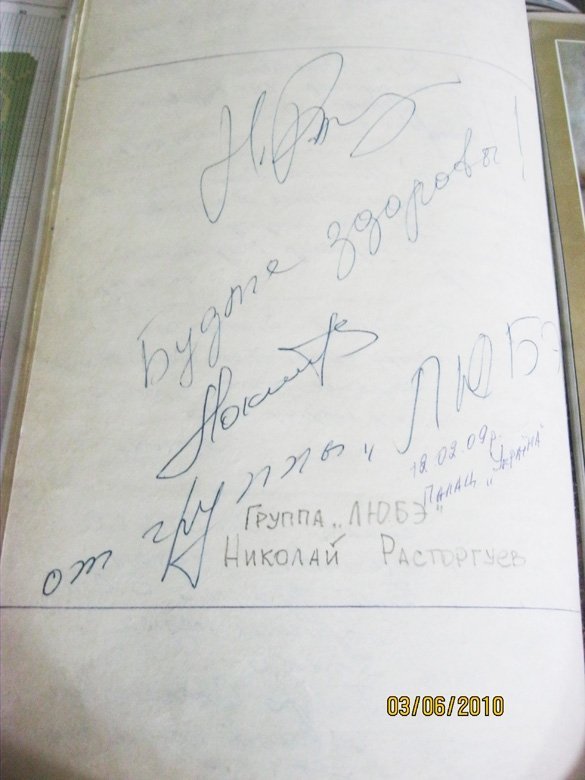 Будьте здоровы!
от группы „ЛЮБЭ
12.02.09р.
Палац „Україна"
Группа „ЛЮБЭ"
Николай Расторгуев
03/06/2010